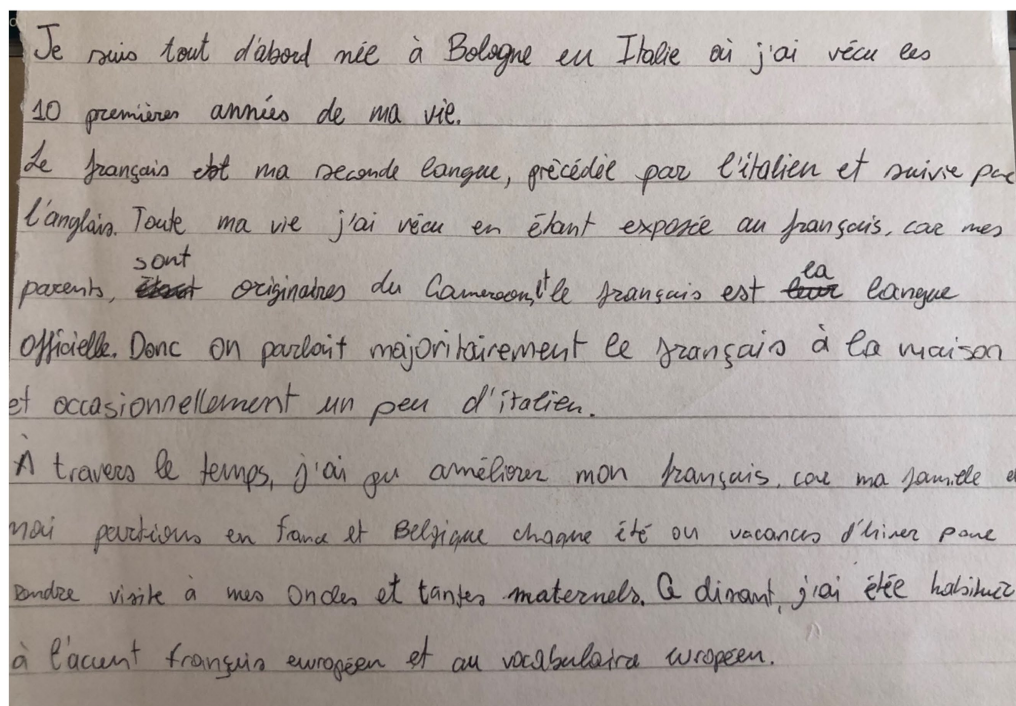 Je suis tout d'abord née à Bologne en Italie où j'ai vécu les
10 premières années de ma vie.
Le français est ma seconde langue, précédée par l'italien et suivie par
l'anglais. Toute ma vie j'ai vécu en étant exposée au français, car mes
sont la
parents, étant originaires du Cameroon, et le français est leur langue
officielle. Donc on parlait majoritairement le français à la maison
et occasionnellement un peu d'italien.
À travers le temps, j'ai pu améliorer mon français, car ma famille et
moi partions en france et Belgique chaque été ou vacances d'hiver pour
rendre visite à mes oncles et tantes maternels. Ce disant, j'ai étée habituée
à l'accent français européen et au vocabulaire européen.